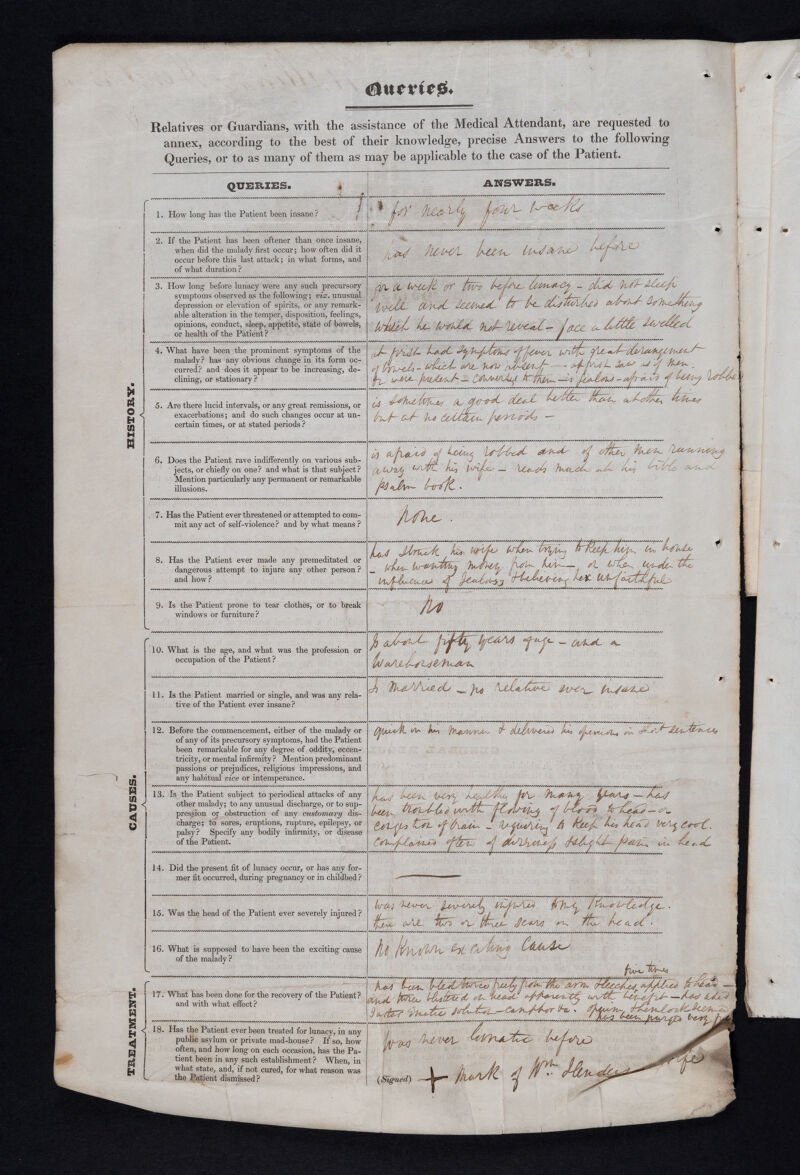 Queries.
Relatives or Guardians, with the assistance of the Medical Attendant, are requested to
annex, according to the best of their knowledge, precise Answers to the following
Queries, or to as many of them as may be applicable to the case of the Patient.
QUERIES.
ANSWERS.
HISTORY.
1. How long has the Patient been insane?
for nearly four weeks
2. If the Patient has been oftener than once insane,
when did the malady first occur; how often did it
occur before this last attack; in what forms, and
of what duration?
has never been insane before
3. How long before lunacy were any such precursory
symptoms observed as the following; viz. unusual
depression or elevation of spirits, or any remark-
able alteration in the temper, disposition, feelings,
opinions, conduct, sleep, appetite, state of bowels,
or health of the Patient?
for a week or two before lunacy - did not sleep
well and seemed to be disturbed about something
which he would not reveal - face a little swelled
4. What have been the prominent symptoms of the
malady? has any obvious change in its form oc-
curred? and does it appear to be increasing, de-
clining, or stationary?
at first had symptoms of fever with great derangement
of bowels - which are now absent - at first saw as if men
were present & conversed to them - is jealous - afraid of being robbed
5. Are there lucid intervals, or any great remissions, or
exacerbations; and do such changes occur at un-
certain times, or at stated periods?
is sometimes a good deal better than at other times
but at no certain periods -
6. Does the Patient rave indifferently on various sub-
jects, or chiefly on one? and what is that subject?
Mention particularly any permanent or remarkable
illusions.
is afraid of being robbed and of other men running
away with his wife - reads much at his bible and
psalm book.
7. Has the Patient ever threatened or attempted to com-
mit any act of self-violence? and by what means?
None.
8. Has the Patient ever made any premeditated or
dangerous attempt to injure any other person?
and how?
has struck his wife when trying to keep him in house
- when wanting money from him -, or when under the
influence of jealousy & believing her unfaithful
9. Is the Patient prone to tear clothes, or to break
windows or furniture?
No
CAUSES.
10. What is the age, and what was the profession or
occupation of the Patient?
Is about fifty years of age - and a
Warehouseman
11. Is the Patient married or single, and was any rela-
tive of the Patient ever insane?
Is Married - no relative ever insane
12. Before the commencement, either of the malady or
of any of its precursory symptoms, had the Patient
been remarkable for any degree of oddity, eccen-
tricity, or mental infirmity? Mention predominant
passions or prejudices, religious impressions, and
any habitual vice or intemperance.
quick in his manner & delivered his opinions in short sentences
13. Is the Patient subject to periodical attacks of any
other malady; to any unusual discharge, or to sup-
pression or obstruction of any customary dis-
charge; to sores, eruptions, rupture, epilepsy, or
palsy? Specify any bodily infirmity, or disease
of the Patient.
has been very healthy for many years - has
been troubled with flowing of blood to head - or
congestion of brain - requiring to keep his head very cool.
Complained often of dizziness & slight pain in head
14. Did the present fit of lunacy occur, or has any for-
mer fit occurred, during pregnancy or in childbed?
15. Was the head of the Patient ever severely injured?
Was never severely injured to my knowledge.
there are two or three scars on the head.
16. What is supposed to have been the exciting cause
of the malady?
No known exciting Cause
TREATMENT.
17. What has been done for the recovery of the Patient?
and with what effect?
five times
has been bled twice freely from the arm & leeches applied to head -
and twice blistered on head apparently with benefit - has used
emetic solution - camphor &c. opium,
has been purged very
18. Has the Patient ever been treated for lunacy, in any
public asylum or private mad-house? If so, how
often, and how long on each occasion, has the Pa-
tient been in any such establishment? When, in
what state, and, if not cured, for what reason was
the Patient dismissed?
was never lunatic before
(Signed) + Mark of Wm. wife